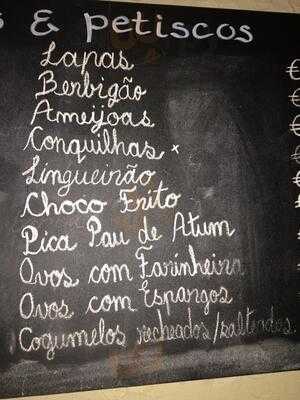 s & petiscos
Lapas €
Berbigão €
Ameijoas €
Conquilhas *
Lingueirão
Choco Frito
Pica Pau de Atum
Ovos com Farinheira
Ovos com Espargos
Cogumelos recheados/salteados